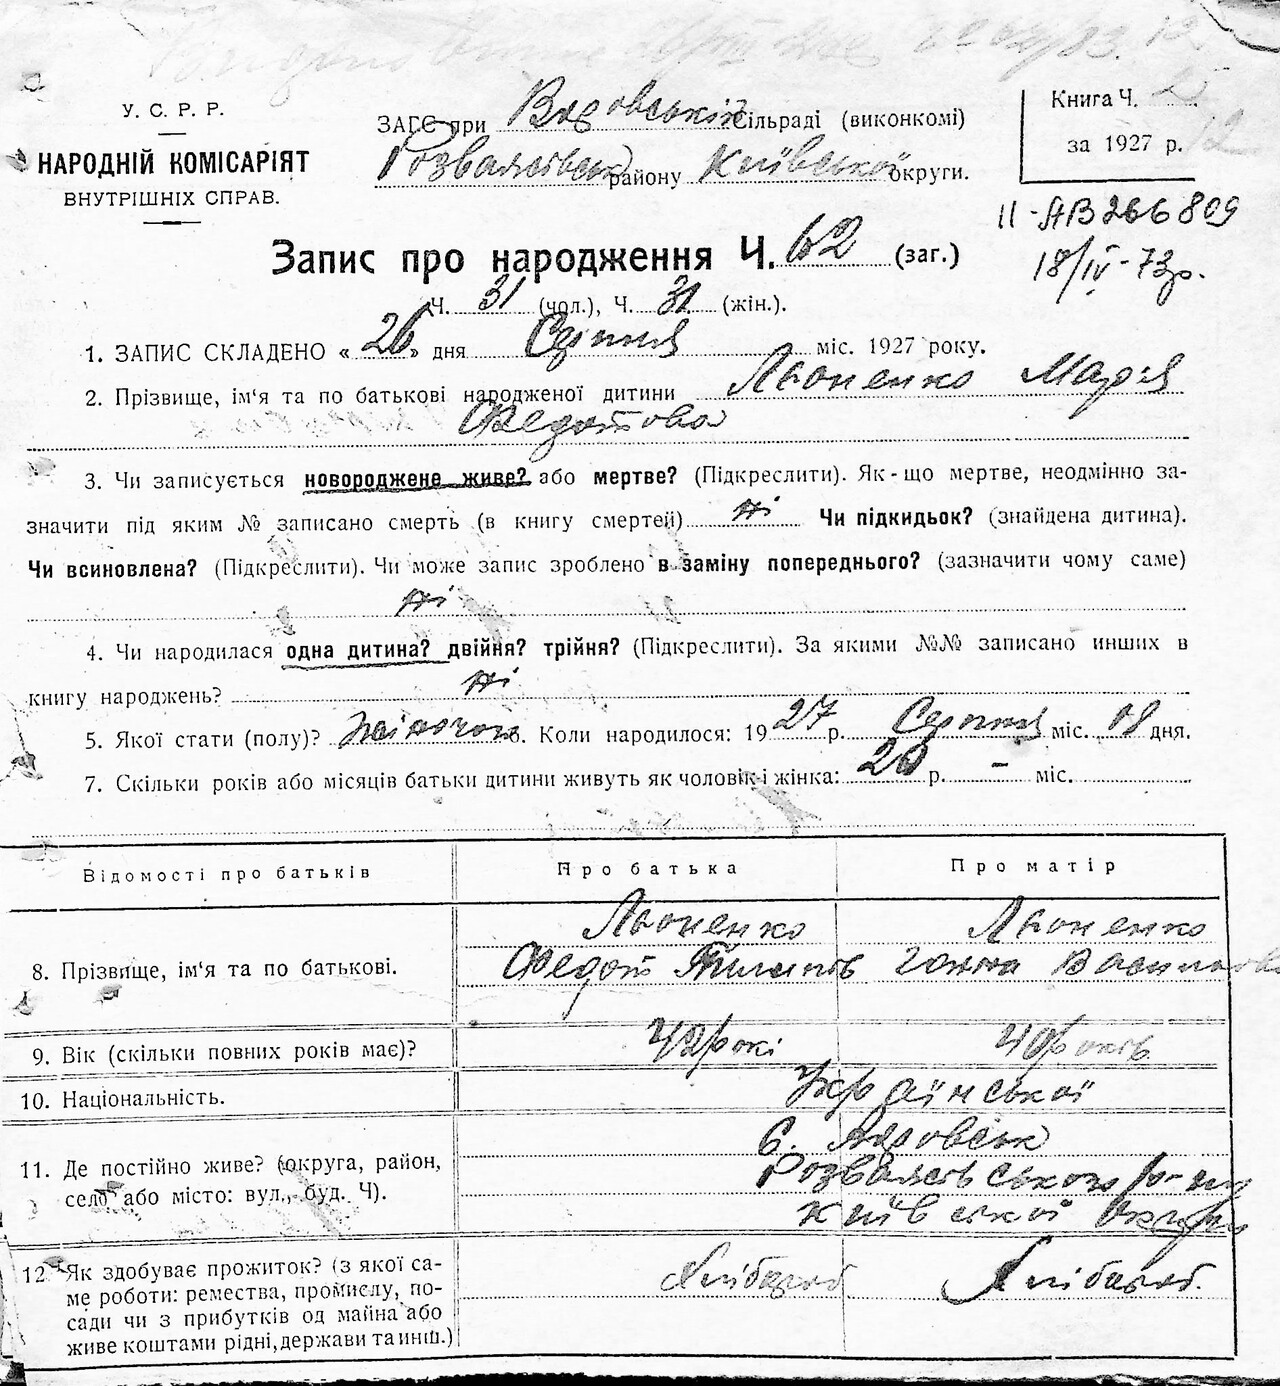 У. С. Р. Р.
НАРОДНІЙ КОМІСАРІЯТ
ВНУТРІШНІХ СПРАВ.
ЗАГС при сільраді (виконкомі)
району Київської округи.
Книга Ч. 2
за 1927 р.
II-АВ 266809
18/IV-73р.
Запис про народження Ч. 62 (заг.)
Ч. 31 (чол.), Ч. 31 (жін.).
1. ЗАПИС СКЛАДЕНО « 26 » дня Серпня міс. 1927 року.
2. Прізвище, ім'я та по батькові народженої дитини Льоненко Марія
Федотова
3. Чи записується новороджене живе? або мертве? (Підкреслити). Як-що мертве, неодмінно за-
значити під яким № записано смерть (в книгу смертей) ні Чи підкидьок? (знайдена дитина).
Чи всиновлена? (Підкреслити). Чи може запис зроблено в заміну попереднього? (зазначити чому саме)
ні
4. Чи народилася одна дитина? двійня? трійня? (Підкреслити). За якими №№ записано инших в
книгу народжень? ні
5. Якої стати (полу)? жіночої 6. Коли народилося: 1927 р. Серпня міс. 08 дня.
7. Скільки років або місяців батьки дитини живуть як чоловік і жінка: 20 р. – міс.
Відомості про батьків Про батька Про матір
8. Прізвище, ім'я та по батькові.
Льоненко Льоненко
Федот Пилипів Ганна Васильова
9. Вік (скільки повних років має)? 42 роки 40 років
10. Національність. Української
11. Де постійно живе? (округа, район,
село або місто: вул., буд. Ч).
с.
р-ну
Київської округи
12. Як здобуває прожиток? (з якої са-
ме роботи: ремества, промислу, по-
сади чи з прибутків од майна або
живе коштами рідні, держави та инш.)
Хлібороб Хлібороб.